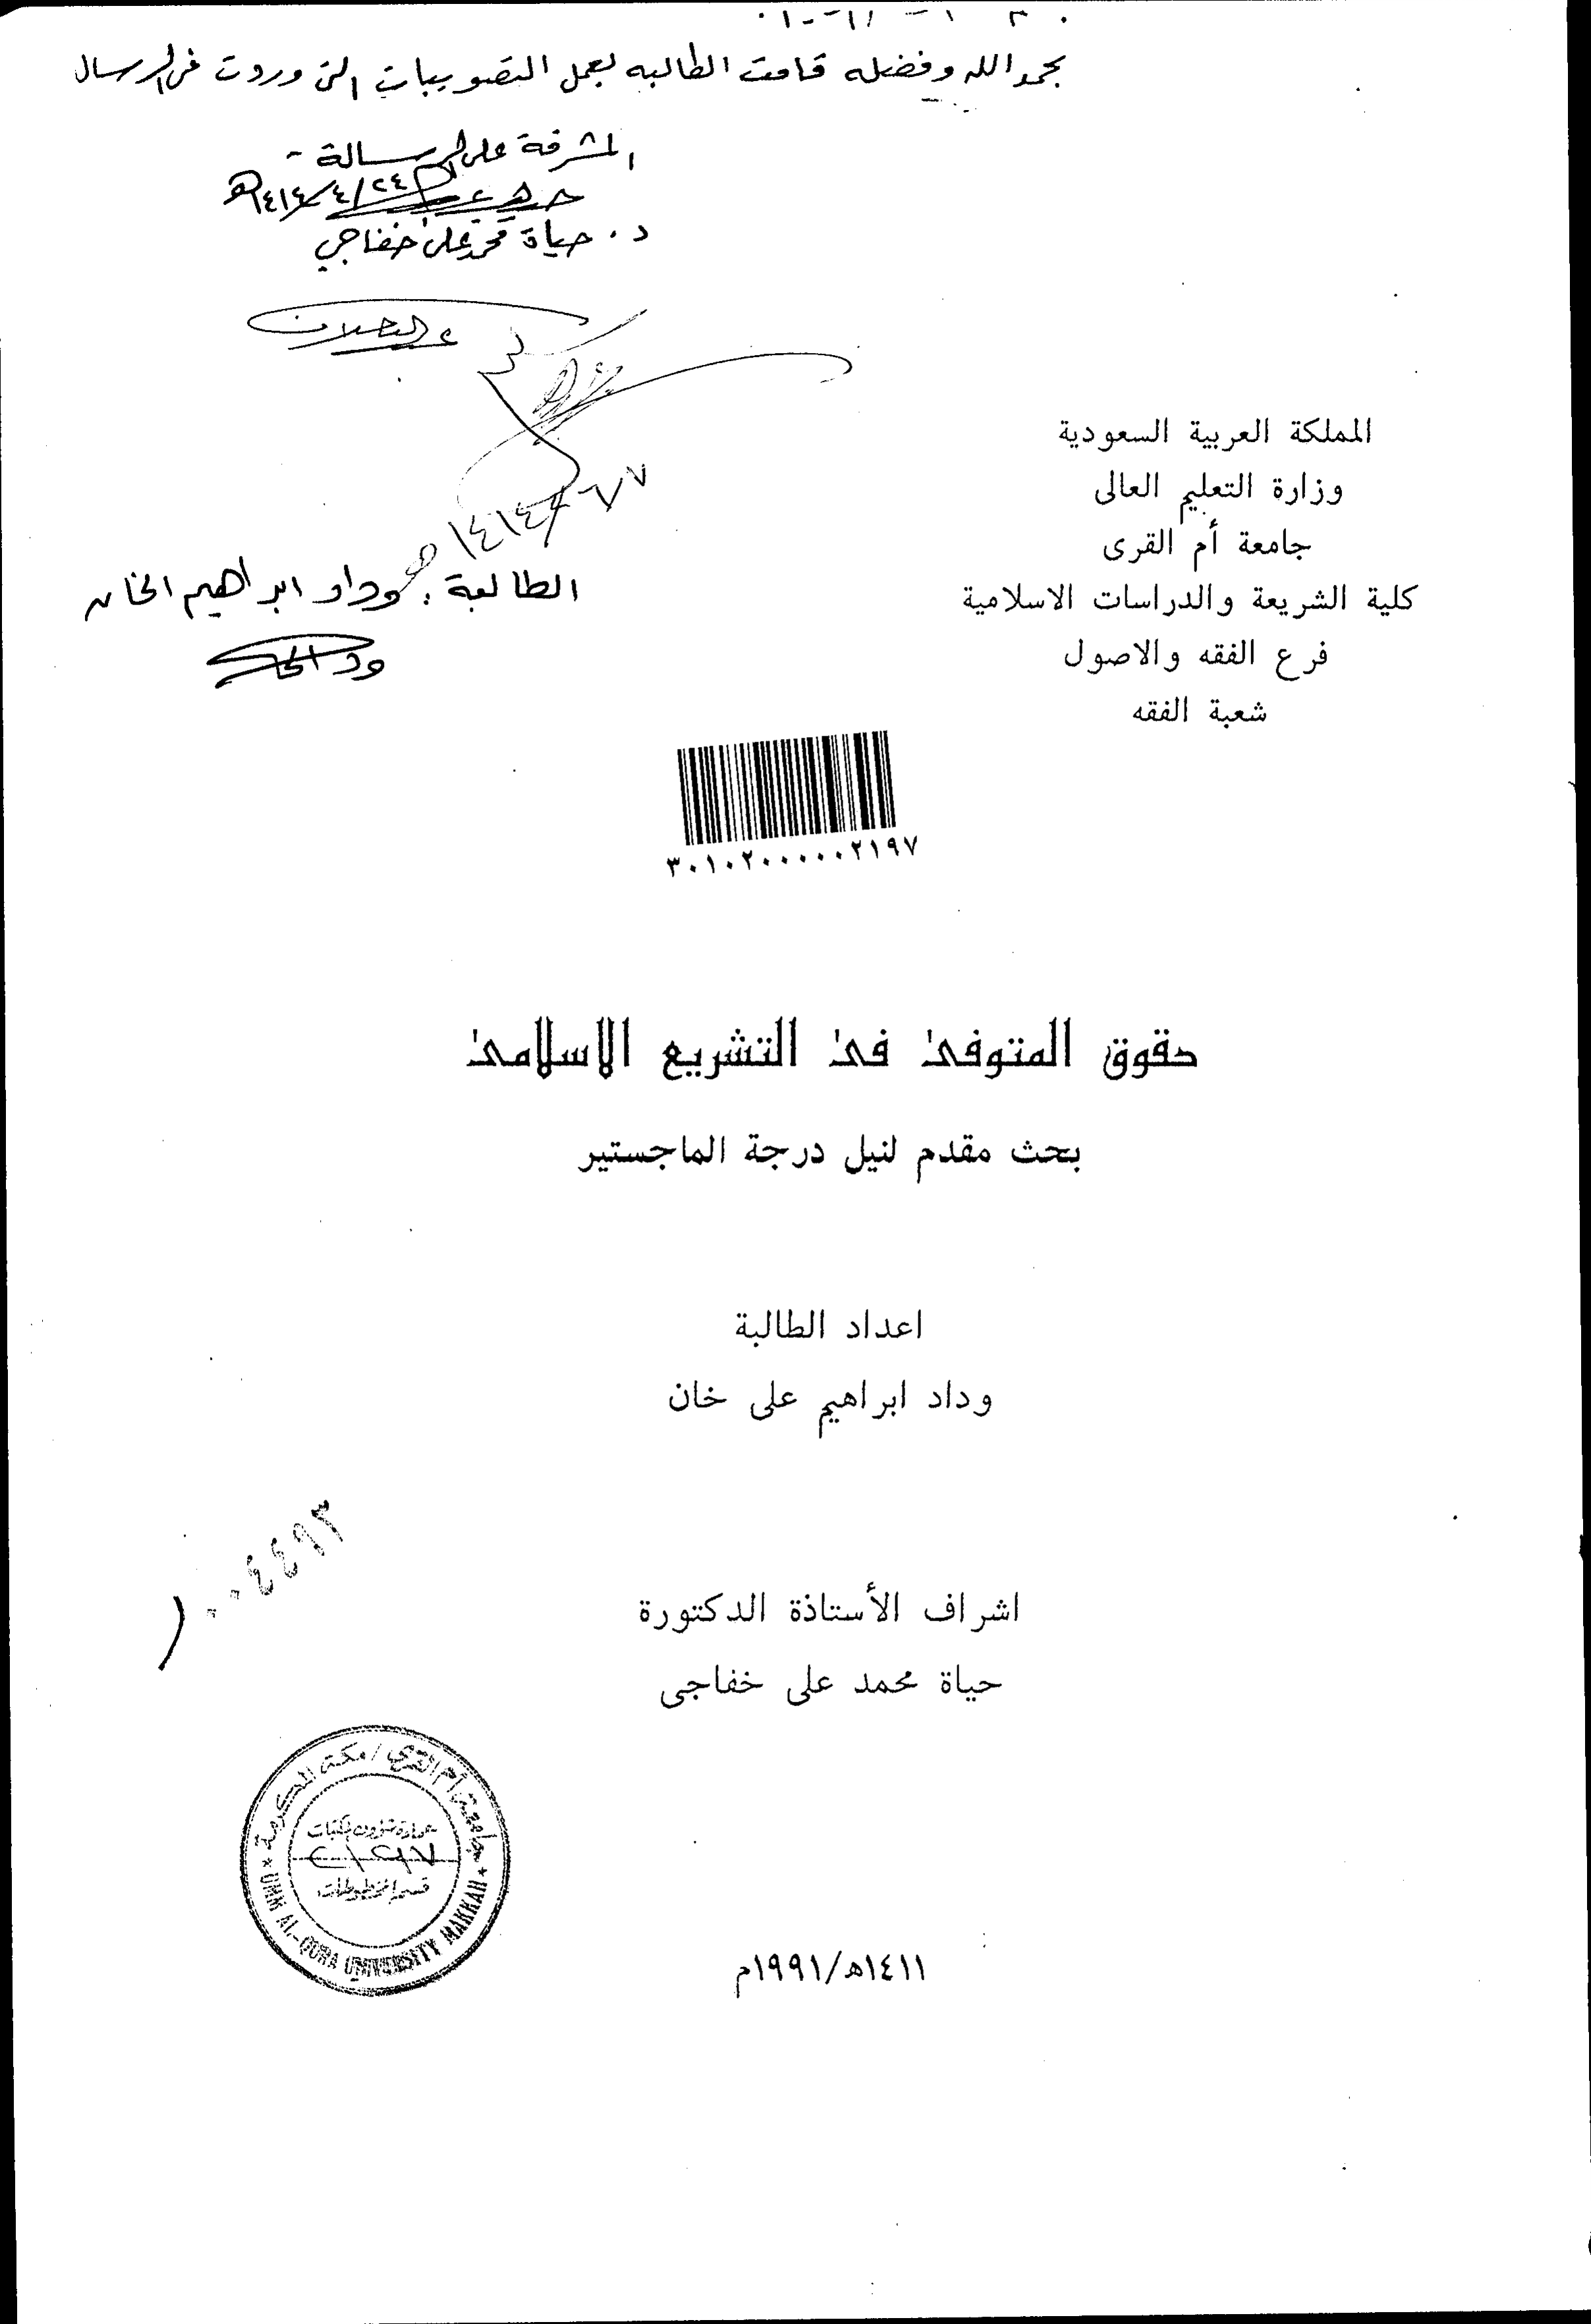 بحمد الله وفضله قامت الطالبه بعمل التصويبات التى وردت فى الرسال
المشرفة على الرسالة -
١٤١٤/٤/٢٤هـ
د. حياة محمد على خفاجي
١٤١٤هـ
الطالبة : وداد ابراهيم الخان
المملكة العربية السعودية
وزارة التعليم العالى
جامعة أم القرى
كلية الشريعة والدراسات الاسلامية
فرع الفقه والاصول
شعبة الفقه
٣٠١٠٢٠٠٠٠٠٢١٩٧
حقوق المتوفى فى التشريع الاسلامى
بحث مقدم لنيل درجة الماجستير
اعداد الطالبة
وداد ابراهيم على خان
٠٠٤٤٩٣
اشراف الأستاذة الدكتورة
حياة محمد على خفاجى
جامعة أم القرى / مكة المكرمة
عمادة شؤون المكتبات
٢١٩٧
قسم المخطوطات
UMM AL-QURA UNIVERSITY MAKKAH
١٤١١ه/١٩٩١م